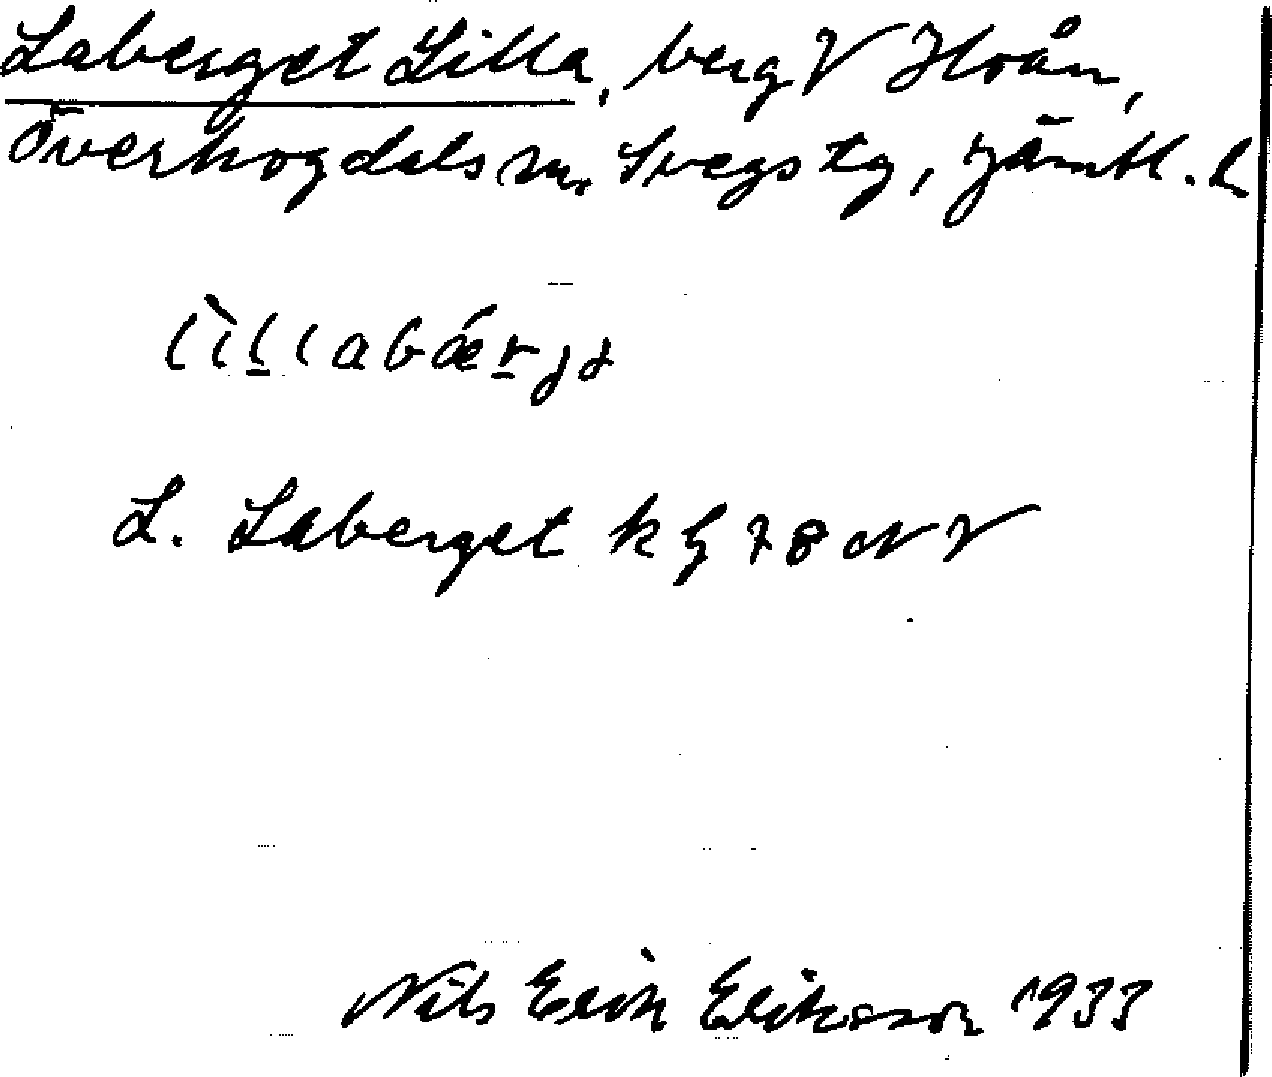 Laberget Lilla, berg V Hoån,
Överhogdals sn. Svegs tg, Jämtl. L
L. Laberget kg 78 NV
Nils Erik Eriksson 1933